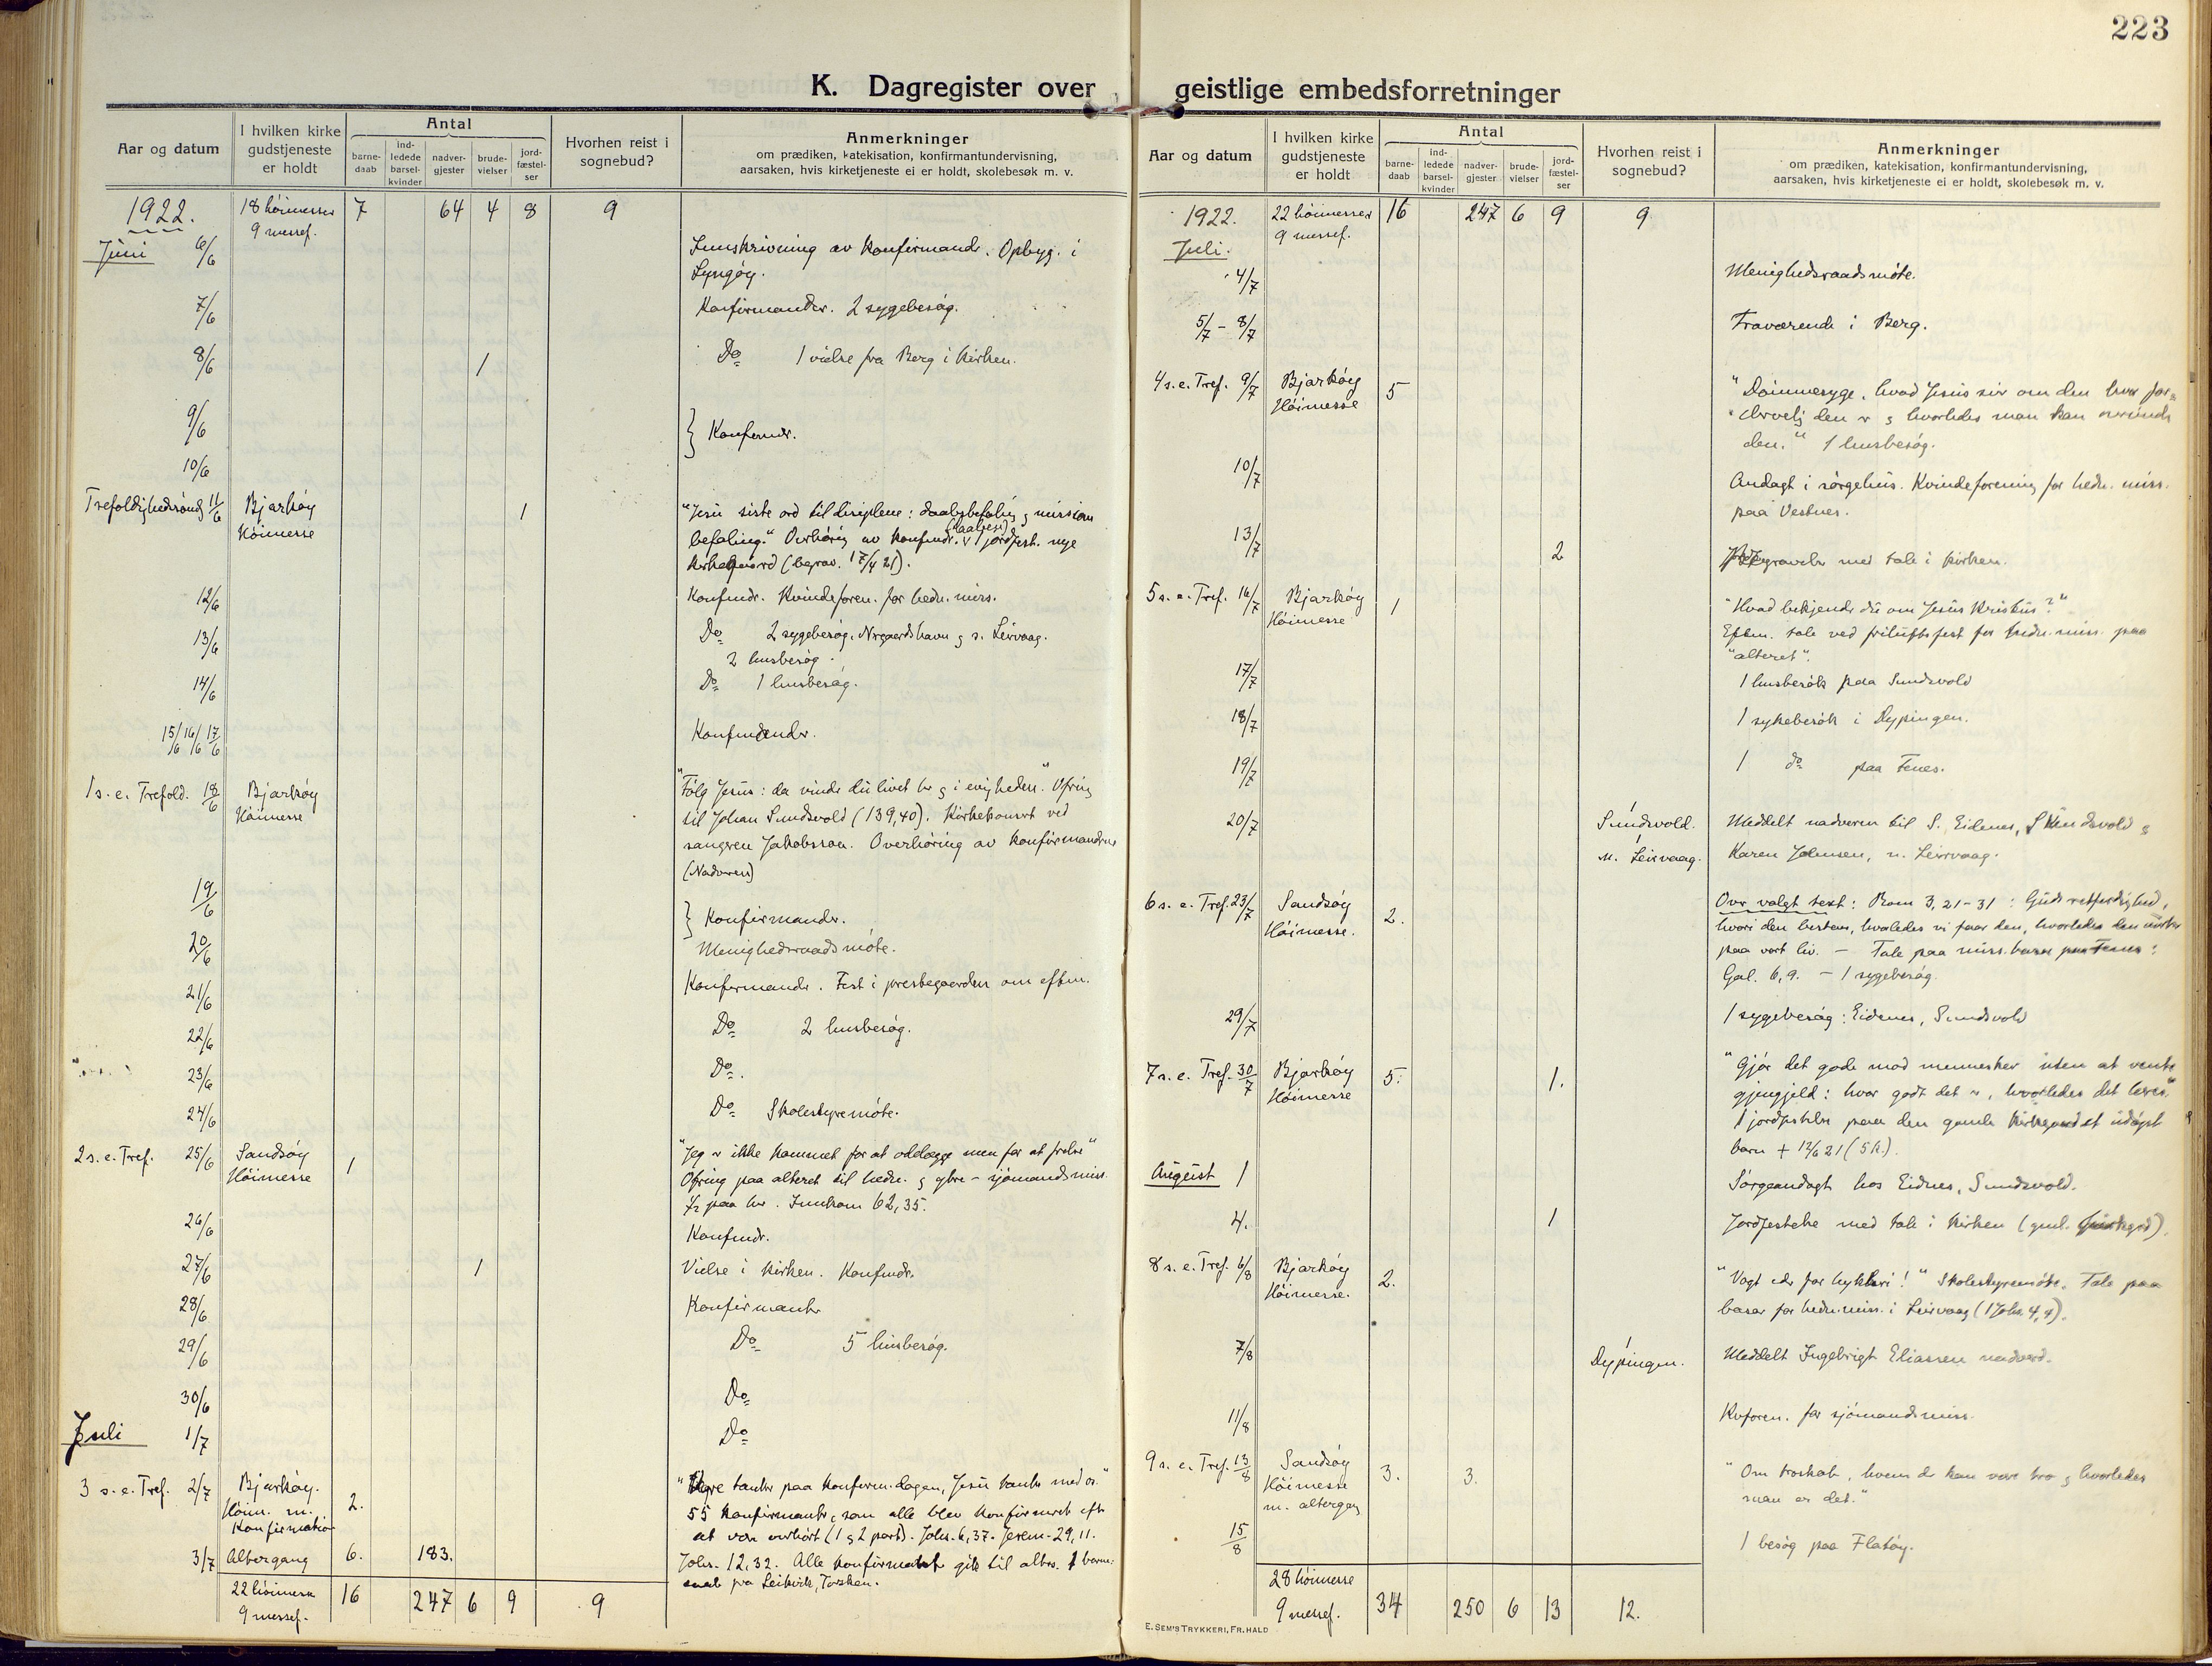 223
K. Dagregister over geistlige embedsforretninger
Aar og datum
I hvilken kirke gudstjeneste er holdt
Antal
barne-daab
ind-ledede barsel-kvinder
nadver-gjester
brude-vielser
jord-fæstel-ser
Hvorhen reist i sognebud?
Anmerkninger
om prædiken, katekisation, konfirmantundervisning,
aarsaken, hvis kirketjeneste ei er holdt, skolebesøk m. v.
1922. 18 höimesser 7 64 4 8 9
9 messef.
Juni 6/6 Innskrivning av konfirmandr. Opbyg. i
7/6 Konfirmander. 2 sygebesög.
8/6 1 Do 1 vielse fra Berg i kirken.
9/6 } Konfirmdr.
10/6
Trefoldighedsönd 11/6 Bjarköy 1 "Jesu siste ord til disiplene: daabsbefaling og missions
Höimesse befaling." Overhöring av konfmdr. 1 jordfest. nye
kirkegaard (begrav. 17/4 21).
12/6 Konfmdr. Kvindeforen. for hedn. miss.
13/6 Do 2 sygebesög. Nergaardshavn og n. Leirvaag.
2 husbesög.
14/6 Do 1 husbesög.
15/6 16/6 17/6 Konfirmandr.
1 s. e. Trefold. 18/6 Bjarköy "Fölg Jesus: da vinder du livet her og i evigheden." Ofring
Höimesse til Johan Sundsvold (139,40). Kirkekonsert ved
sangeren Jakobsson. Overhöring av konfirmandene
(Nadveren)
19/6 } Konfirmandr.
20/6 Menighedsraadsmöte.
21/6 Konfirmandr. Fest i prestegaarden om eftm.
22/6 Do 2 husbesög.
23/6 Do.
24/6 Do Skolestyremöte.
2 s. e. Tref. 25/6 Sandsöy 1 "Jeg er ikke kommet for at oddlægge men for at frelse"
Höimesse Ofring paa alteret til hedn. og ytre - sjömandsmiss.
1/2 paa hver. Innkom 62,35.
26/6 Konfmdr.
27/6 1 Vielse i kirken. Konfmdr.
28/6 Konfirmanter
29/6 Do 5 husbesög.
30/6 Do
Juli 1/7 Do
3 s. e. Tref. 2/7 Bjarköy. 2. tanker paa konfirm.dagen, Jesu tanker med os."
Höim. m. 55 konfirmanter, som alle blev konfirmert efter
Konfirmation at være overhört (1 og 2 part). Johs. 6,37. Jerem. 29,11.
3/7 Altergang 6. 183. Johs. 12,32. Alle konfirmanter gik til alters. 1 barne-
daab fra Leikvik, Torsken.
22 höimesser 16 247 6 9 9
9 messef.
Aar og datum
I hvilken kirke gudstjeneste er holdt
Antal
barne-daab
ind-ledede barsel-kvinder
nadver-gjester
brude-vielser
jord-fæstel-ser
Hvorhen reist i sognebud?
Anmerkninger
om prædiken, katekisation, konfirmantundervisning,
aarsaken, hvis kirketjeneste ei er holdt, skolebesøk m. v.
1922. 22 höimesser 16 247 6 9 9
9 messef.
Juli.
4/7 Menighedsraadsmöte.
5/7 - 8/7 Fraværende i Berg.
4 s. e. Tref. 9/7 Bjarköy 5 "Dömmesyge, hvad Jesus sier om den hvor for-
Höimesse dervelig den er og hvorledes man kan overvinde
den." 1 husbesög.
10/7 Andagt i sörgehus. Kvindeforening for hedn. miss.
paa Vestnes.
13/7 2 med tale i kirken.
5 s. e. Tref. 16/7 Bjarköy 1 "Hvad bekjender du om Jesus Kristus?"
Höimesse Eftm. tale ved friluftsfest for hedn. miss. paa
"alteret".
17/7 1 husbesök paa Sundsvold
18/7 1 sykebesök i Dypingen.
19/7 1 do paa Fenes.
20/7 Sundsvold. Meddelt nadveren til S. Eidenes, Sundsvold og
n. Leirvaag. Karen Johnsen, n. Leirvaag.
6 s. e. Tref. 23/7 Sandsöy 2. Over valgt text: Rom 3,21-31: Guds retferdighed,
Höimesse. hvori den bestaar, hvorledes vi faar den, hvorledes den virker
paa vort liv. - Tale paa miss. basar paa Fenes:
Gal. 6,9. - 1 sygebesög.
29/7 1 sygebesög: Eidenes, Sundsvold
7 s. e. Tref. 30/7 Bjarköy 5. 1. "Gjör det gode mod mennesker uten at vente
Höimesse gjengjeld: hvor godt det er, hvorledes det læres"
1 jordfestelse paa den gamle kirkegaard et udöpt
barn + 12/6 21 (5 h.).
August 1 Sörgeandagt hos Eidnes, Sundsvold.
4. 1 Jordfestelse med tale i kirken (gml. kirkegrd).
8 s. e. Tref. 6/8 Bjarköy 2. "Vogt eder for hykleri!" Skolestyremöte. Tale paa
Höimesse. basar for hedn. miss. i Leirvaag (1 Johs. 4,9).
7/8 Dypingen. Meddelt Ingebrigt Eliassen nadverd.
11/8 Kvforen. for sjömandsmiss.
9 s. e. Tref. 13/8 Sandsöy 3. 3. "Om troskab, hvem der kan være tro og hvorledes
Höimesse man er det."
m. altergang
15/8 1 besög paa Flatöy.
28 höimesse
9 messef. 34 250 6 13 12.
E. SEM'S TRYKKERI, FR.HALD